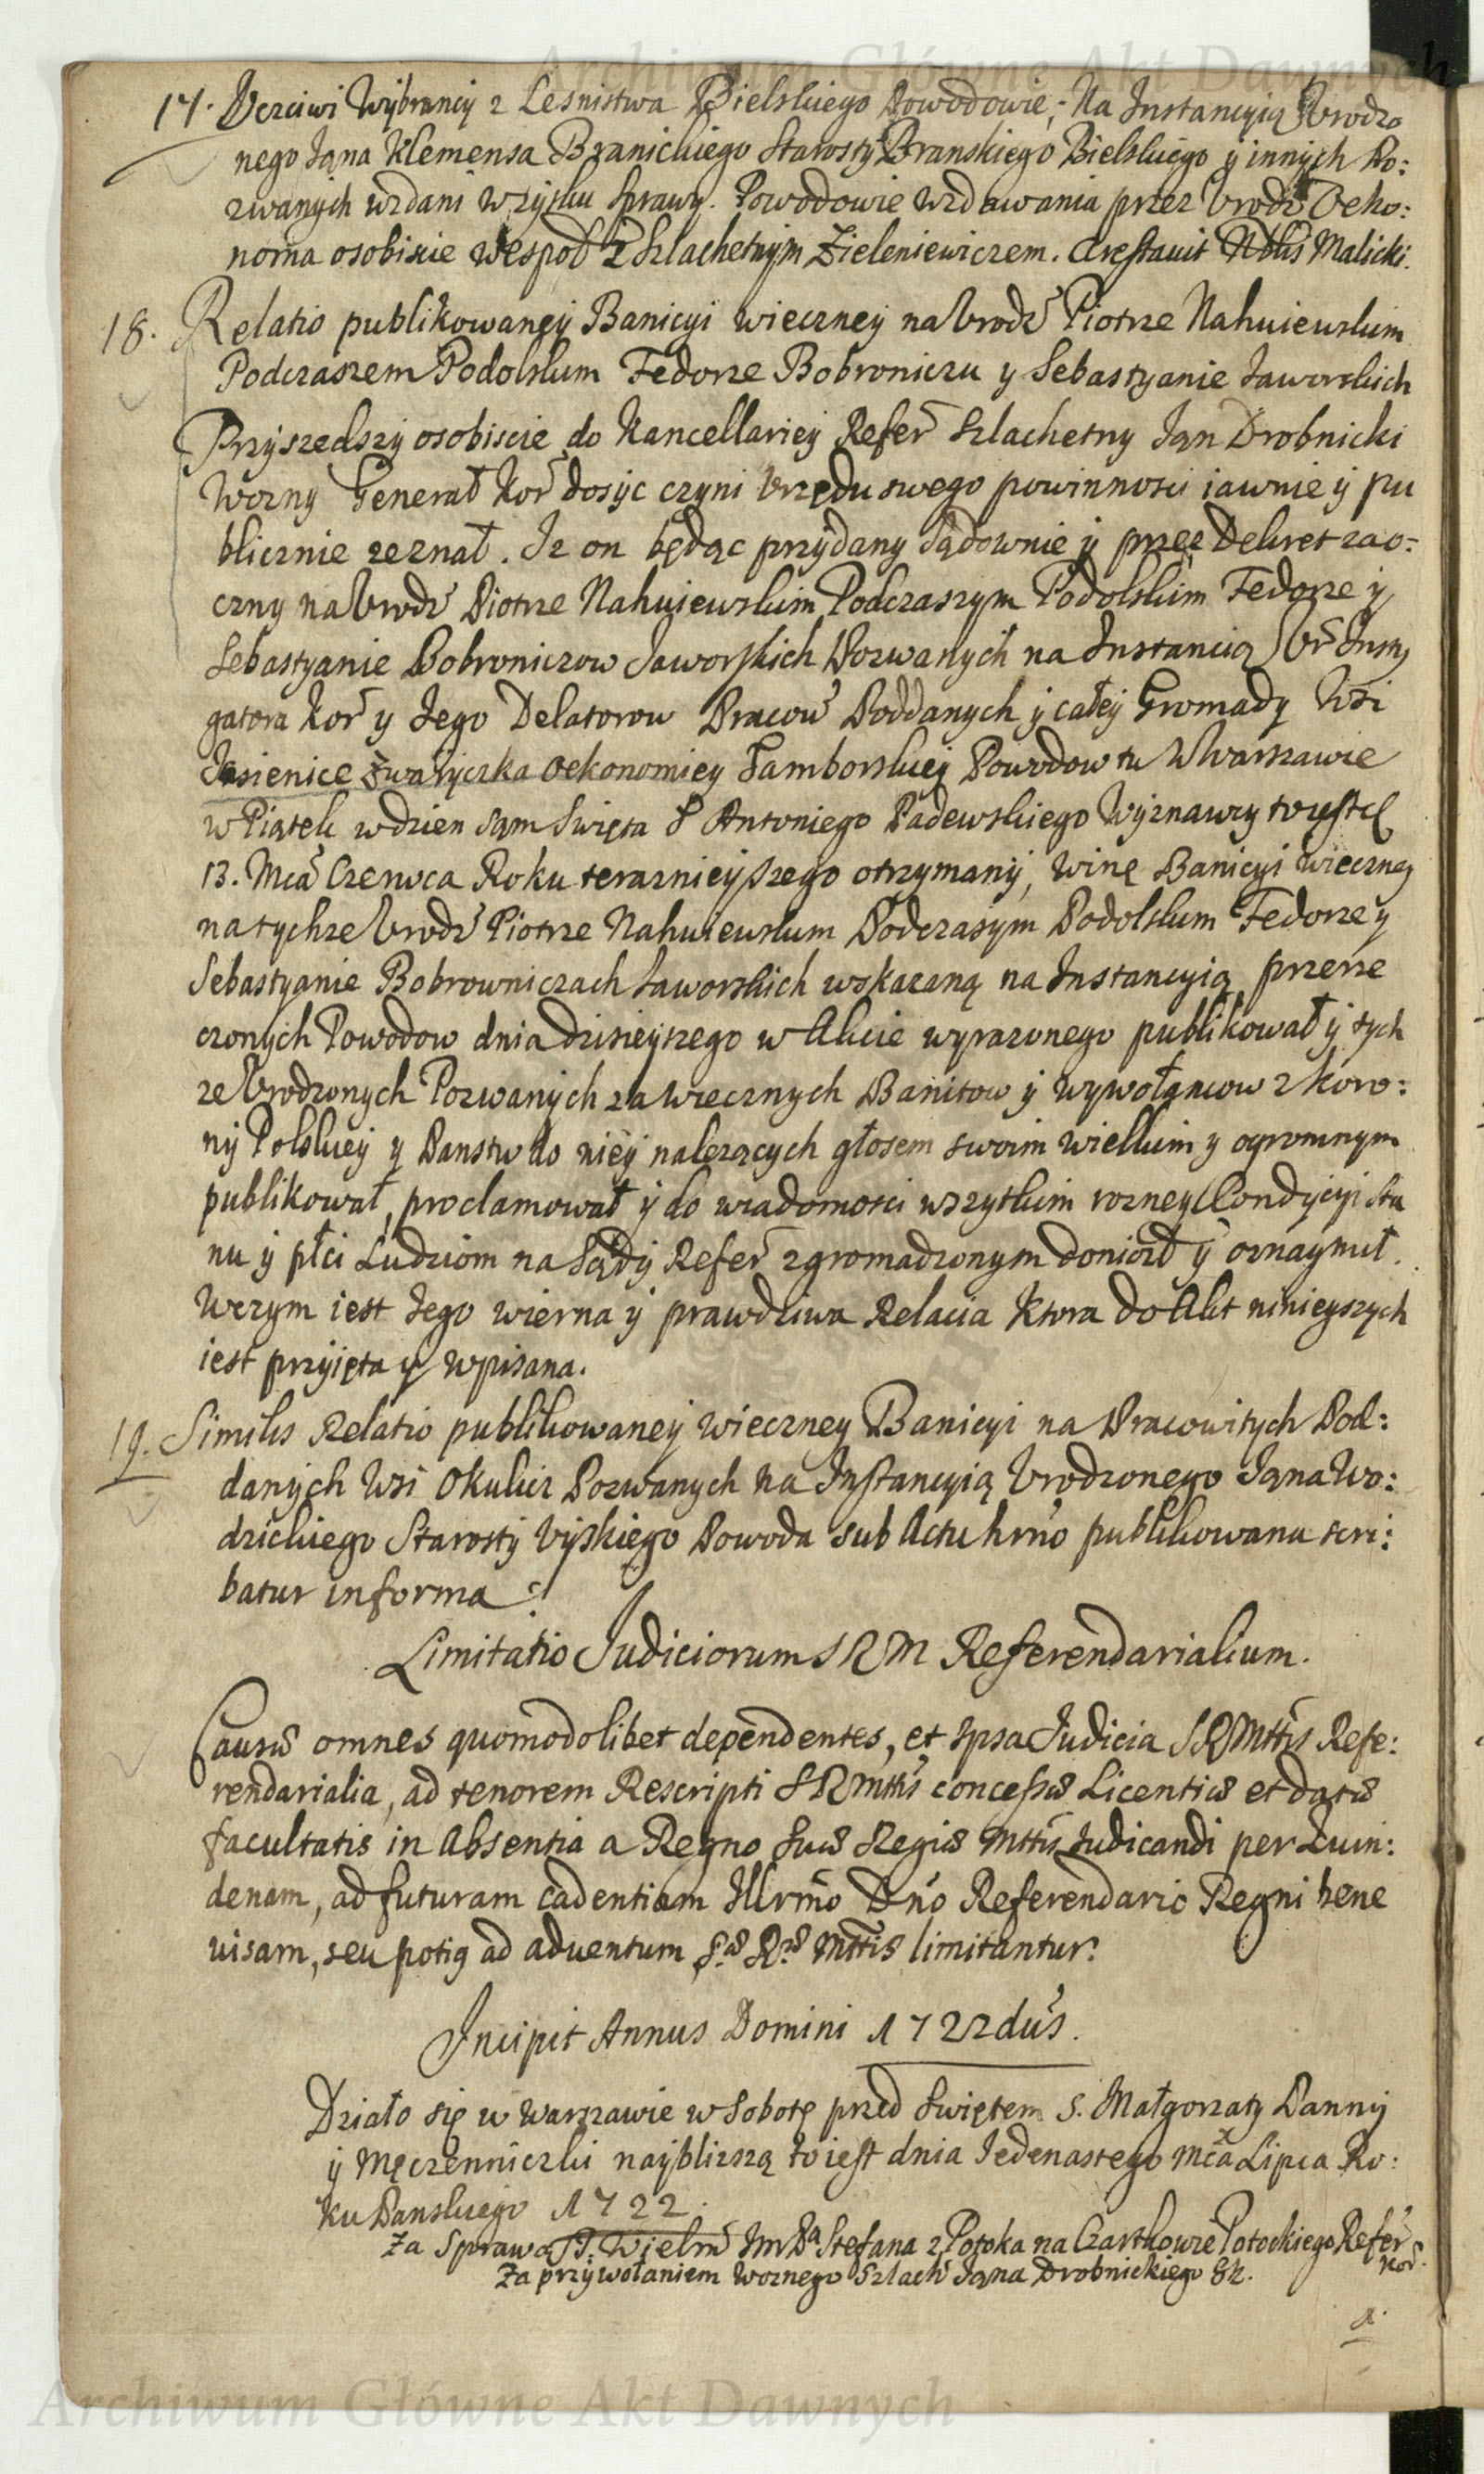 Archiwum Główne Akt Dawnych
17. Vczciwi Wybrancy z Lesnistwa Bielskiego Powodowie, Na Instancyią Vrodzo
nego Jana Klemensa Branickiego Starosty Branskiego Bielskiego y innych Po:
zwanych wzdani w zysku Sprawy. Powodowie wzdawania przez Vrodz Oeko:
noma osobiscie wespoł z Szlachetnym Zieleniewiczem. Arestavit Nblis Malicki.
18. Relatio publikowaney Banicyi wieczney na Vrodz Piotrze Nahuiewskim
Podczaszem Podolskim Fedorze Bobroniczu y Sebastyanie Jaworskich
Przyszedszy osobiscie do Kancellariey Refer Szlachetny Jan Drobnicki
Wozny Generał Kor dosyc czyni Vrzędu swego powinnosci iawnie y pu
blicznie zeznał. Iz on będąc przydany Sądownie y przez Dekret zao:
czny na Vrodz Piotrze Nahuiewskim Podczaszym Podolskim Fedorze y
Sebastyanie Bobroniczow Jaworskich Pozwanych na Instancią Vr Insty
gatora Kor y Jego Delatorow Pracow Poddanych y całey Gromady Wsi
Jasienice Zwaryczka Oekonomiey Samborskiey Powodow tu w Warszawie
w Piątek w dzien sam Swięta S Antoniego Padewskiego Wyznawcy to iest
13. Mca Czerwca Roku teraznieyszego otrzymany, winę Banicyi wieczney
na tychze Vrodz Piotrze Nahuiewskim Podczasym Podolskim Fedorze y
Sebastyanie Bobrowniczach Jaworskich wskazaną na Instancyią przerze
czonych Powodow dnia dzisieyszego w Akcie wyrazonego publikował y tych
ze Vrodzonych Pozwanych za wiecznych Banitow y wywołancow z Koro:
ny Polskiey y Panstw do niey nalezących głosem swoim wielkim y ogromnym
publikował, proclamował y do wiadomosci wszytkim rozney Condycyi sta
nu y płci Ludziom na Sądy Refer zgromadzonym doniozł y oznaymił.
Wczym iest Jego wierna y prawdziwa Relacia Ktora do Akt ninieyszych
iest przyięta y wpisana.
19. Similis Relatio publikowaney wieczney Banicyi na Pracowitych Pod:
danych Wsi Okulicz Pozwanych na Instancyią Vrodzonego Jana Wo:
dzickiego Starosty Vyskiego Powoda sub Actu hrno publikowana scri:
batur in forma
Limitatio Judiciorum S R M Referendarialium.
Causæ omnes quomodolibet dependentes, et ipsa Judicia S R Mttis Refe:
rendarialia, ad tenorem Rescripti S R Mttis concessæ Licentiæ et datæ
facultatis in Absentia a Regno Suæ Regiæ Mttis Judicandi per Quin:
denam, ad futuram cadentiam Illrmo Dno Referendario Regni bene
visam, seu potig ad adventum S.æ R.æ Mttis limitantur.
Incipit Annus Domini 1722dus.
Działo się w Warszawie w Sobotę przed Swiętem S. Małgorzaty Panny
y Męczenniczki nayblizszą to iest dnia Jedenastego Mca Lipca Ro:
ku Panskiego 1722.
Za Sprawą J. Wielm Im Pa Stefana z Potoka na Czartkowze Potockiego Refer
Kor.
Za przywołaniem Woznego Szlach Jana Drobnickiego Sk.
Archiwum Główne Akt Dawnych